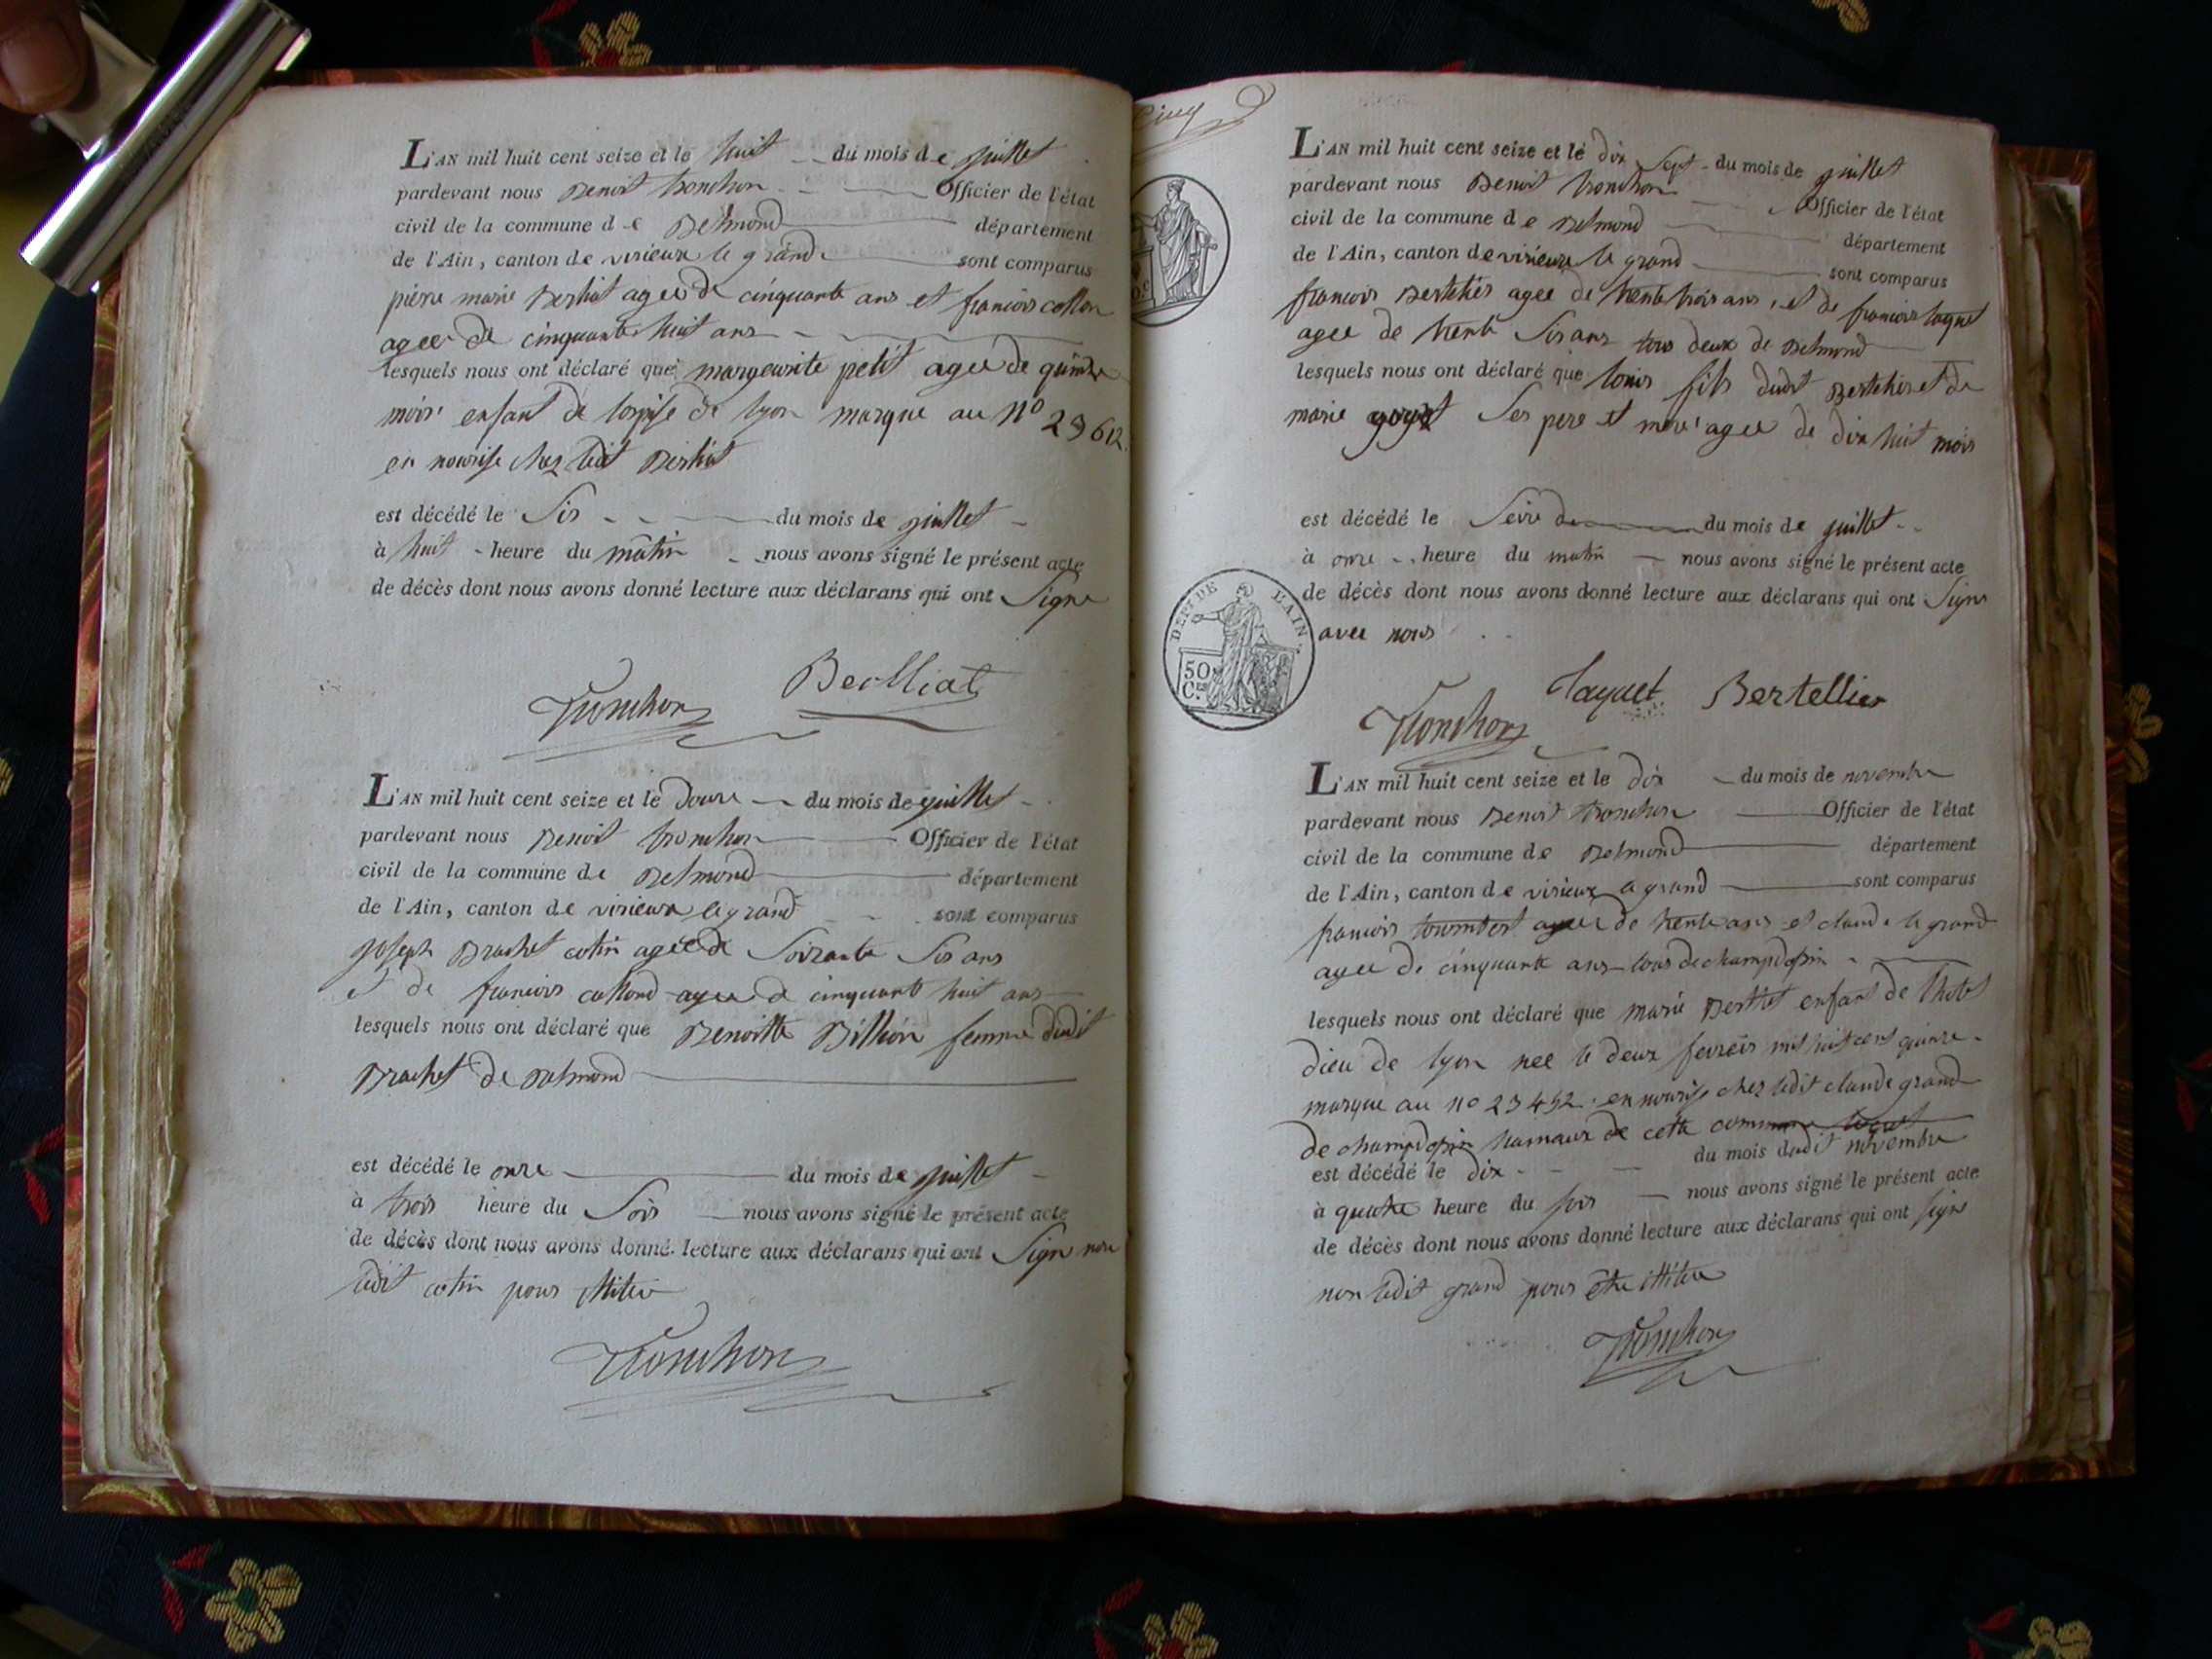 L'AN mil huit cent seize et le huit du mois de juillet
pardevant nous Benoit tronchon Officier de l'état
civil de la commune de Belmond département
de l'Ain, canton de virieux le grand sont comparus
pierre marie Berliat agee de cinquante ans et francois collon
agee de cinquante huit ans
lesquels nous ont déclaré que margeurite petit agee de quinze
mois enfant de de lyon marque au no
en nourise chez ledit Berliat
est décédé le Sis du mois de juillet
à huit heure du mâtin nous avons signé le présent acte
de décès dont nous avons donné lecture aux déclarans qui ont Signe
Tronchon Beolliat
L'AN mil huit cent seize et le douze du mois de juillet
pardevant nous Benoit tronchon Officier de l'état
civil de la commune de Belmond département
de l'Ain, canton de virieux le grand sont comparus
joseph Brachet cotin agée de Soixante Sis ans
et de francois collond agee de cinquante huit ans
lesquels nous ont déclaré que Benoitte Billion femme dudit
Brachet de Belmond
est décédé le onze du mois de juillet
à trois heure du Soir nous avons signé le présent acte
de décès dont nous avons donné lecture aux déclarans qui ont Signe non
ledit cotin pour
Tronchon
Cinq
L'AN mil huit cent seize et le dix Sept du mois de juillet
pardevant nous Benoit tronchon Officier de l'état
civil de la commune de Belmond département
de l'Ain, canton de virieux le grand sont comparus
francois Bertelier agee de trente trois ans, et de francois taquet
agee de trente Sis ans tous deux de Belmond
lesquels nous ont déclaré que louis fils dudit Bertelier et de
marie Ses pere et mere agee de dix huit mois
est décédé le Seize du mois de juillet
à onze heure du matin nous avons signé le présent acte
de décès dont nous avons donné lecture aux déclarans qui ont Signe
avec nous
DEPT DE L'AIN
50
C.es
Taquet Bertellier
Tronchon
L'AN mil huit cent seize et le dix du mois de novembre
pardevant nous Benoit tronchon Officier de l'état
civil de la commune de Belmond département
de l'Ain, canton de virieux le grand sont comparus
francois agee de trente ans et claude le grand
agee de cinquante ans tous de champdosin
lesquels nous ont déclaré que marie Berthet enfant de l'hotel
dieu de lyon nee le deux fevreir mil huit cent quinze
marque au no 23452 en nourise chez ledit claude grand
de champdosin hamaux de cette commune
est décédé le dix du mois dudit novembre
à quatre heure du soir nous avons signé le présent acte
de décès dont nous avons donné lecture aux déclarans qui ont signe
non ledit grand pour être
Tronchon